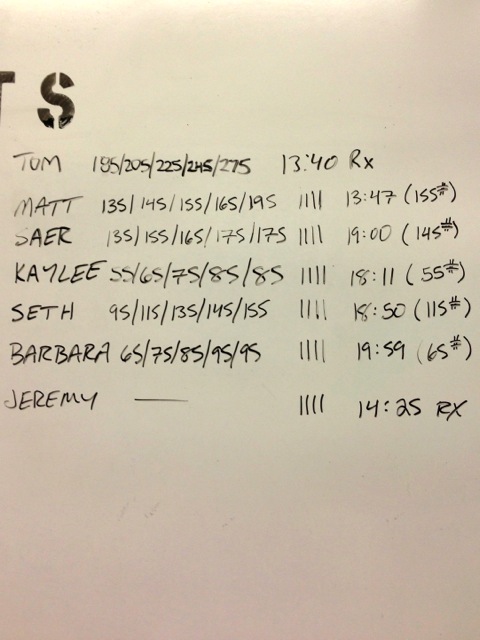 T S
TOM 185/205/225/245/275 13:40 Rx
MATT 135/145/155/165/195 |||| 13:47 (155#)
SAER 135/155/165/175/175 |||| 19:00 (145#)
KAYLEE 55/65/75/85/85 |||| 18:11 (55#)
SETH 95/115/135/145/155 |||| 18:50 (115#)
BARBARA 65/75/85/95/95 |||| 19:59 (65#)
JEREMY — |||| 14:25 RX